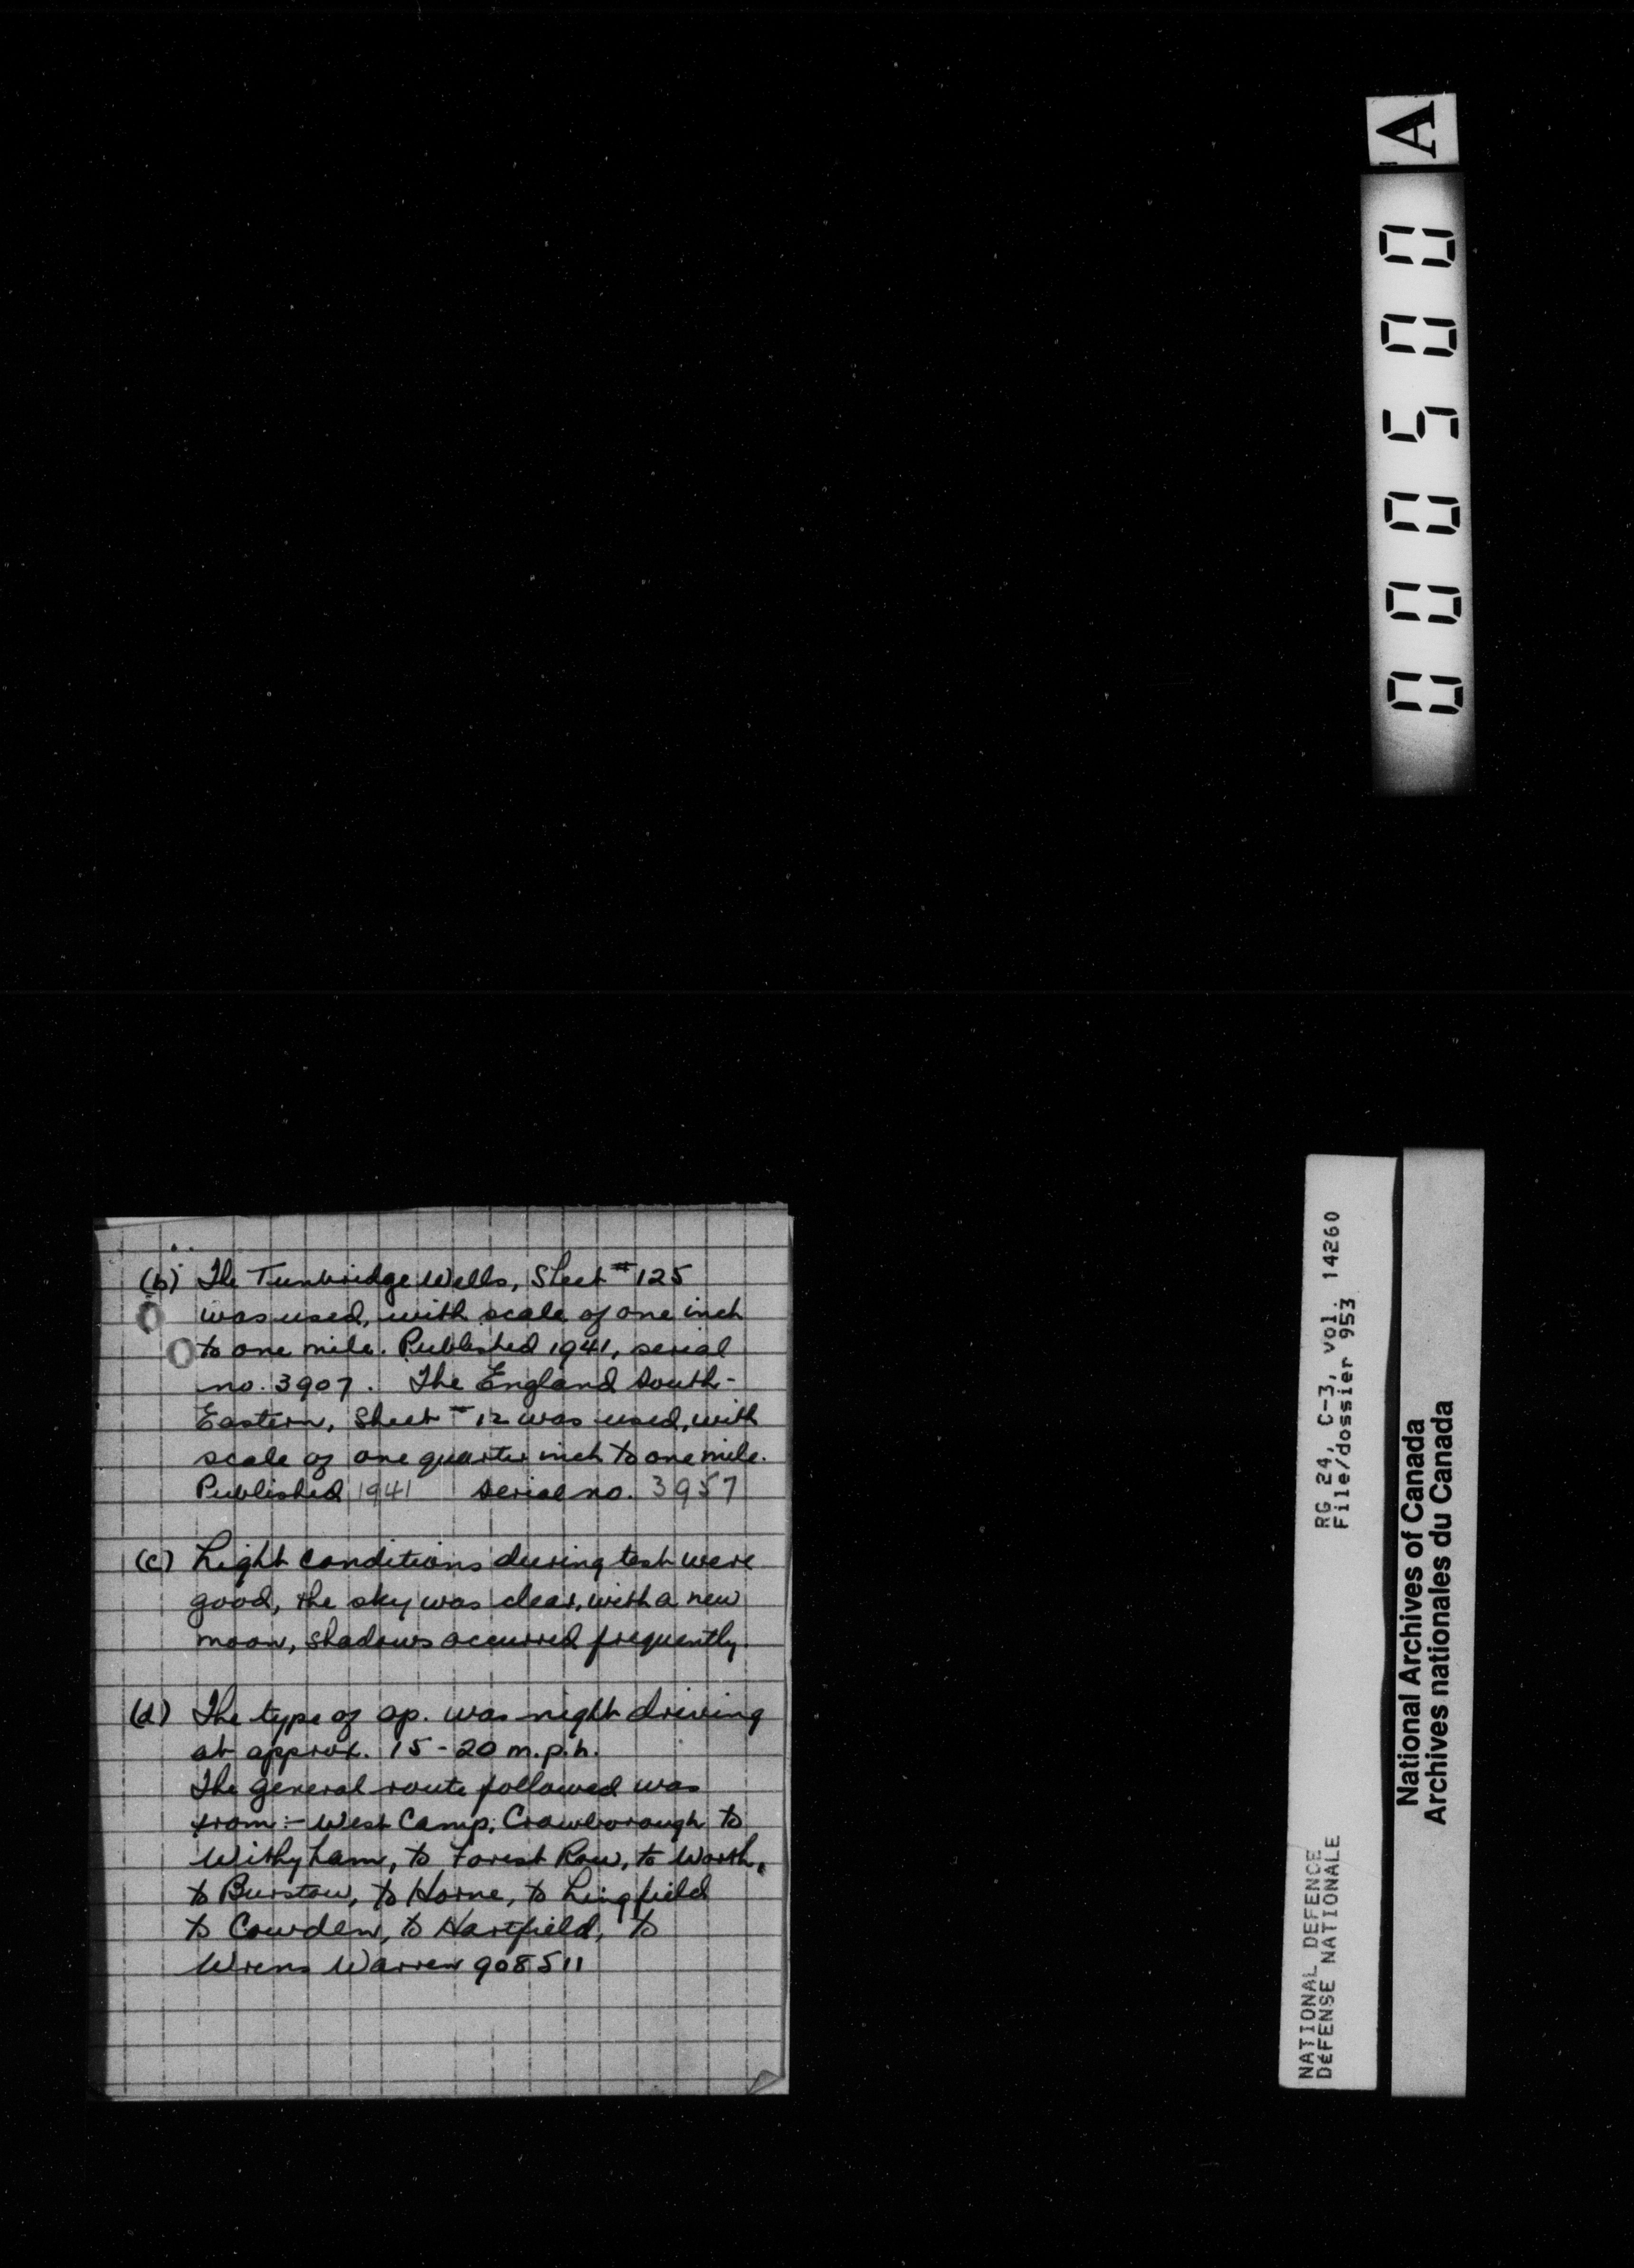 A
000500
(b) The Tunbridge Wells, Sheet #125
was used, with scale of one inch
to one mile. Published 1941, serial
no. 3907. The England South-
Eastern, Sheet # 12 was used, with
scale of one quarter inch to one mile.
Published 1941 serial no. 3957
(c) Light conditions during test were
good, the sky was clear, with a new
moon, shadows occurred frequently.
(d) The type of op. was night driving
at approx. 15-20 m.p.h.
The general route followed was
from:- West Camp, Crowborough to
Withyham, to Forest Row, to Worth,
to Burstow, to Horne, to Lingfield
to Cowden, to Hartfield, to
Wrens Warren 908511
RG 24, C-3, vol. 14260
File/dossier 953
NATIONAL DEFENCE
DéFENSE NATIONALE
National Archives of Canada
Archives nationales du Canada